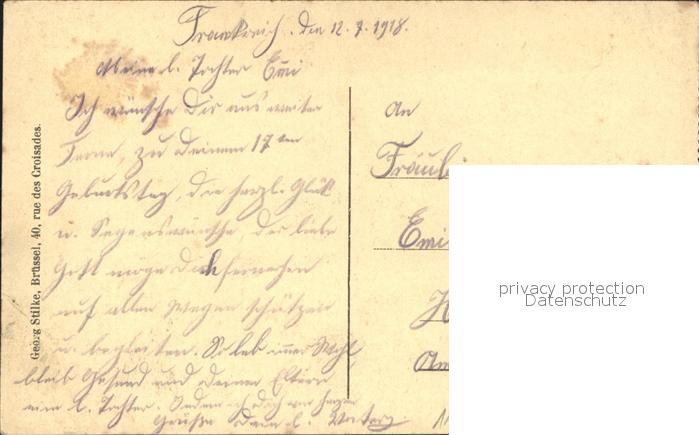 Frankreich, den 12. 7. 1918.
Meine l. Tochter Emi
Ich wünsche Dir aus weiter
Ferne, zu Deinem 17ten
Geburtstag, die herzl. Glück
u. Segenswünsche, der liebe
Gott möge Dich fernerhin
auf allen Wegen schützen
u. begleiten. So leb immer Wohl,
bleib Gesund und Deinen Eltern
eine l. Tochter.
Grüße Dein l.
An
Fräulei
Emi
Georg Stilke, Brüssel, 40, rue des Croisades.
privacy protection
Datenschutz